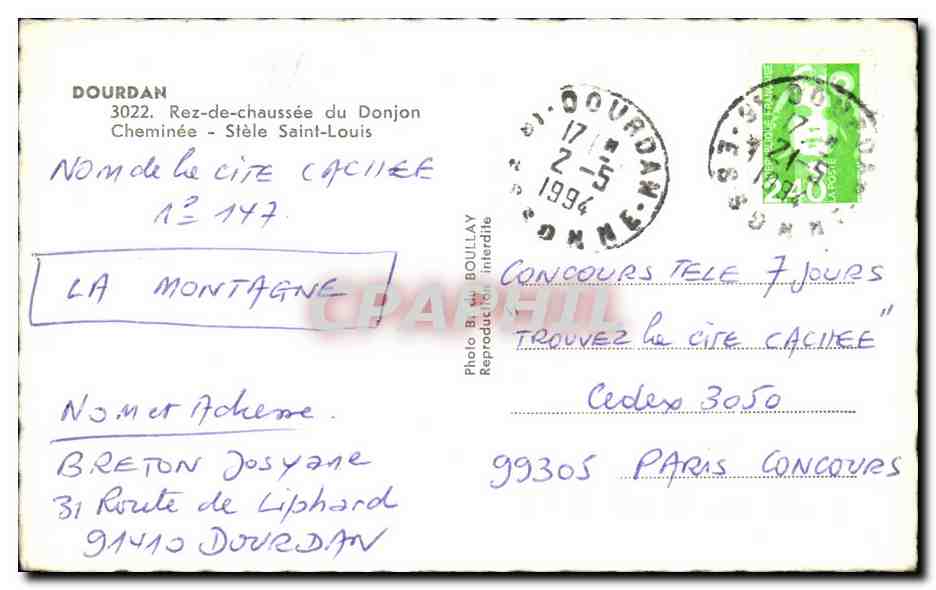 DOURDAN
3022. Rez-de-chaussée du Donjon
Cheminée - Stèle Saint-Louis
Nom de la CITE CACHEE
n° 147.
LA MONTAGNE
Nom et Adresse.
BRETON Josyane
31 Route de Liphard
91410 DOURDAN
Photo B. du BOULLAY
Reproduction interdite
91 - DOURDAN
17 H
2 - 5
1994
ESSONNE
91 DOURDAN
17 H
2 - 5
1994
ESSONNE
REPUBLIQUE FRANÇAISE
2,40
LA POSTE
CONCOURS TELE 7 JOURS
"TROUVEZ la CITE CACHEE"
Cedex 3050
99305 PARIS CONCOURS
CPAPHIL